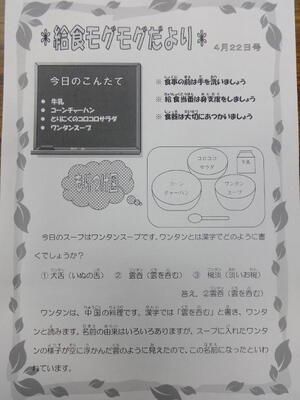 給食モグモグだより
4月22日号
今日のこんだて
● 牛乳
● コーンチャーハン
● とりにくのコロコロサラダ
● ワンタンスープ
※ 食事の前は手を洗いましょう
※ 給食当番は身支度をしましょう
※ 食器は大切にあつかいましょう
もりつけ図
コロコロ
サラダ
牛乳
コーン
チャーハン
ワンタン
スープ
今日のスープはワンタンスープです。ワンタンとは漢字でどのように書
くでしょうか?
① 犬舌(いぬの舌) ② 雲呑(雲を呑む) ③ 椀淡(淡いお椀)
答え、②雲呑(雲を呑む)
ワンタンは、中国の料理です。漢字では「雲を呑む」と書き、ワンタ
ンと読みます。名前の由来はいろいろありますが、スープに入れたワンタ
ンの様子が空に浮かんだ雲のように見えたので、この名前になったといわ
れています。